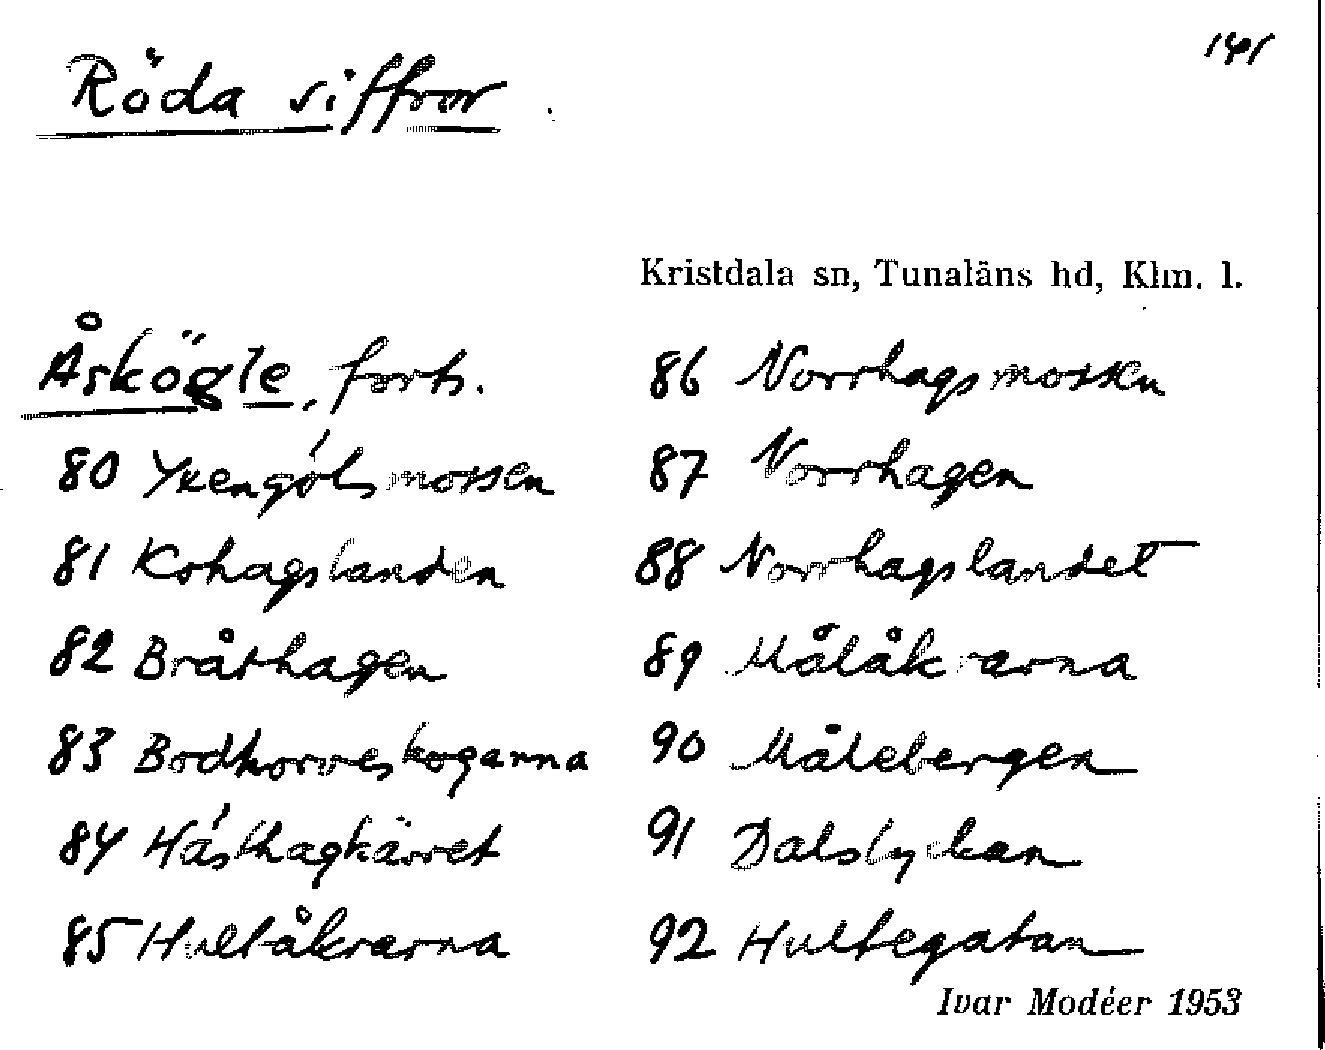 141
Röda siffror
Kristdala sn, Tunaläns hd, Klm. l.
Åskögle, forts.
80 Yxengölsmossen
81 Kohagslanden
82 Bråthagen
83 Bodhorveskogarna
84 Hästhagkärret
85 Hultåkrarna
86 Norrhagsmossen
87 Norrhagen
88 Norrhagslandet
89 Målåkrarna
90 Målebergen
91 Dalslyckan
92 Hultegatan
Ivar Modéer 1953